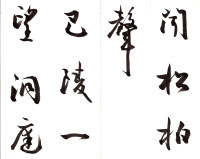 聞松柏
聲
巴陵一
望洞庭